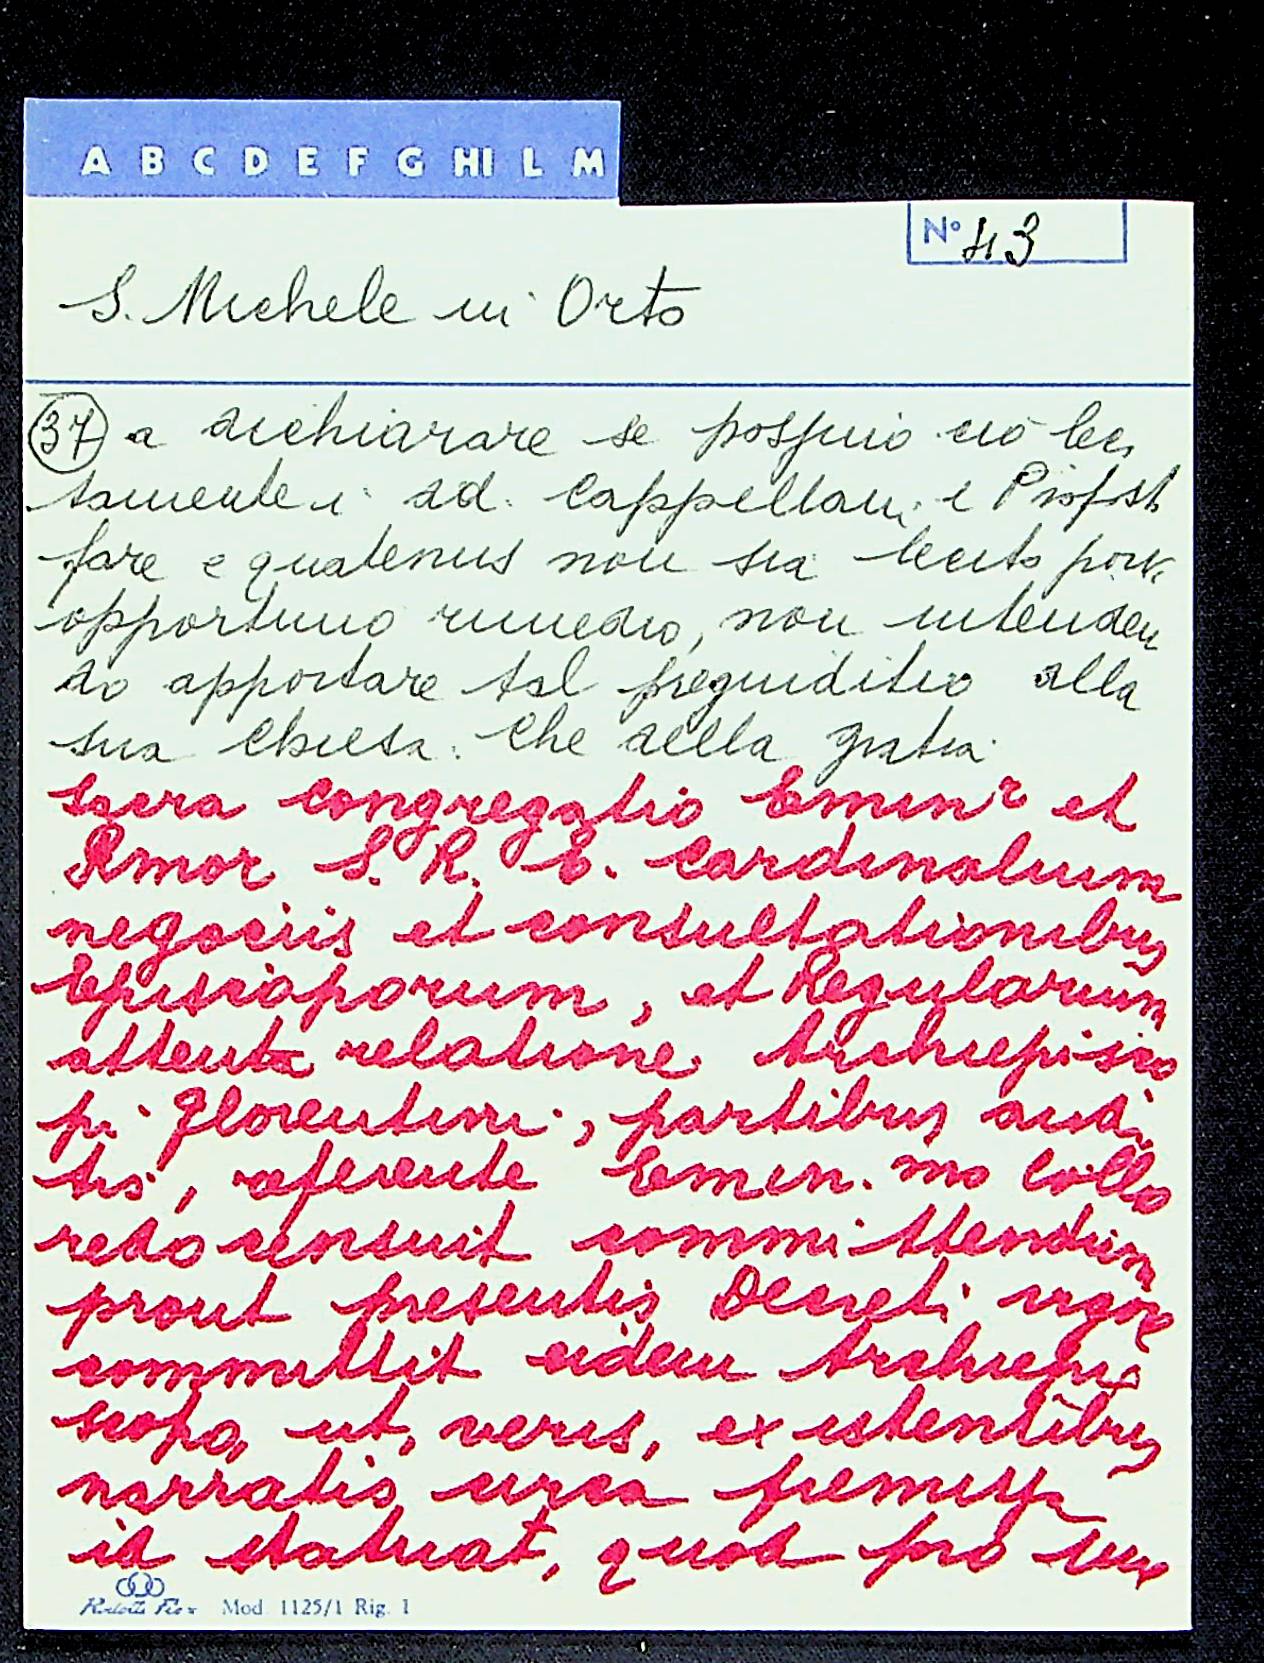 A B C D E F G HI L M
N° 43
S. Michele in Orto
37 a dichiarare se possino ciò leci
tamente i dd. Cappellani e Propost
fare e quatenus non sia lecito porv.
opportuno rimedio, non intenden
do apportare tal pregiuditio alla
sua Chiesa. Che della gratia
Sacra congregatio Emin et
Rmor S. R. E. Cardinalium
negociis et consultationibus
Episcoporum, et Regularium
attenta relatione Archiepisco
pi Florentini, partibus audi
tis, referente Emin. mo Collo
redo censuit committendum
prout presentis Decreti vigore
committit eidem Archiepi
scopo, ut, veris, existentibus
narratis circa premissa
id statuat, quod pro sua
Mod. 1125/1 Rig. 1